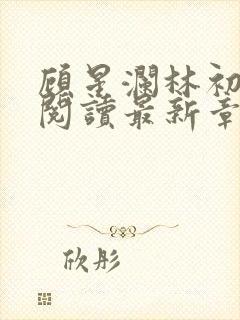 顾星澜林初
閱讀最新章
欣彤